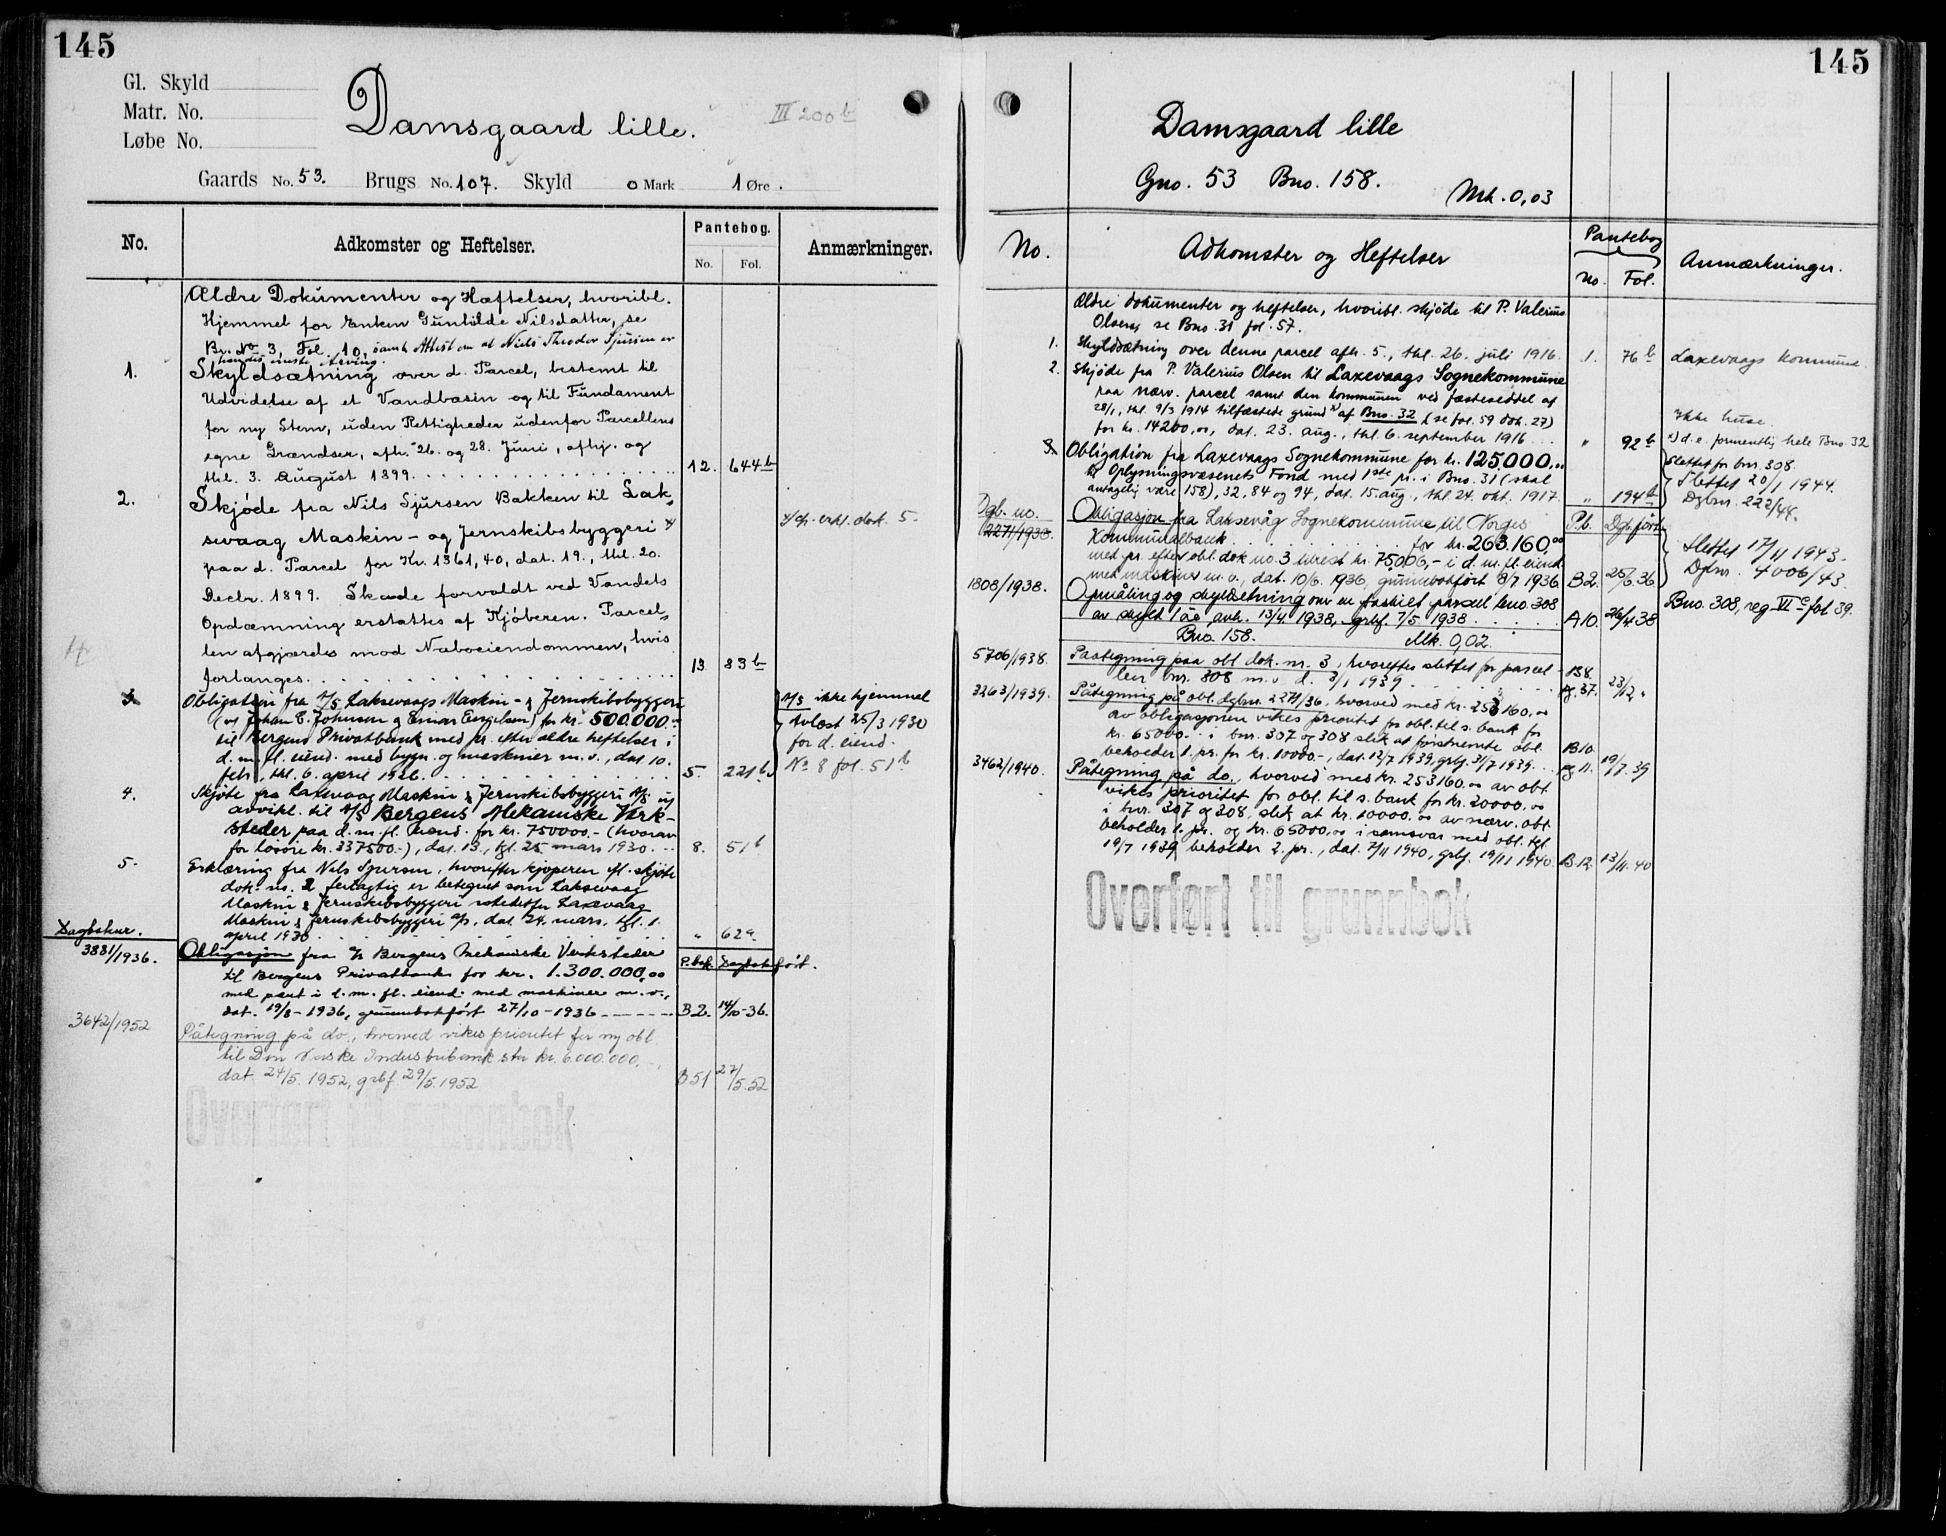 145
Gl. Skyld
Matr. No.
Løbe No.
Damsgaard lille.
III 200 b
Gaards No. 53. Brugs No. 107. Skyld 0 Mark 1 Øre.
No. Adkomster og Heftelser. Pantebog. Anmærkninger.
No. Fol.
Ældre Dokumenter og Hæftelser, hvoribl.
Hjemmel for Enken Gunhilde Nilsdatter, se
Br. No 3, Fol. 10, samt Attest om at Niels Theodor Sjursen er
hendes eneste Arving.
1. Skyldsætning over d. Parcel, bestemt til
Udvidelse af et Vandbasin og til Fundament
for ny Stem, uden Rettigheder udenfor Parcellens
egne Grændser, afh. 26. og 28. Juni, afhj. og
thl. 3. August 1899. 12. 644 b
2. Skjøde fra Nils Sjursen Bakken til Lak-
sevaag Maskin- og Jernskibsbyggeri x)
paa d. Parcel for Kr. 1361,40, dat. 19., thl. 20.
Decbr. 1899. Skade forvoldt ved Vandets
Opdæmning erstattes af Kjøberen. Parcel-
len afgjærdes mod Naboeiendommen, hvis
forlanges. 13. 83 b
x) cfr. erkl. dok. 5.
3. Obligation fra A/S Laksevaags Maskin- & Jernskibsbyggeri
(ved Johan E. Johnsen og Einar Eengelsen) for kr. 500.000.-
til Bergens Privatbank med pr. efter ældre heftelser i
d. m. fl. eiend. med bygn. og maskiner m. v., dat. 10.
febr., thl. 6. april 1926. 5. 221 b
A/S ikke hjemmel
Avløst 25/3 1930
for d. eiend.
No 8 fol. 51 b
4. Skjøte fra Laksevaag Maskin & Jernskibsbyggeri A/S u/
avvikl. til A/S Bergens Mekaniske Verk-
steder paa d. m. fl. eiend. for kr. 750000.- (hvorav
for løsøre kr. 337500.-), dat. 13., tgl. 25 mars 1930. 8. 51 b
5. Erklæring fra Nils Sjursen, hvorefter kjøperen ifl. skjøte
dok. no. 2 feilagtig er betegnet som Laksevaag
Maskin & Jernskibsbyggeri istedetfor Laxevaag
Maskin & Jernskibsbyggeri A/S, dat. 24. mars, tgl. 1.
april 1930 " 62 a.
Dagboknr.
3881/1936. Obligasjon fra A/S Bergens Mekaniske Verksteder
P. bok Dagbokført.
til Bergens Privatbank for kr. 1.300.000,00
med pant i d. m. fl. eiend. med maskiner m. v.,
dat. 19/8-1936, grunnbokført 27/10-1936 B2. 14/10-36.
3642/1952 Påtegning på do., hvorved vikes prioritet for ny obl
til Den Norske Industribank stor kr. 6.000.000,-,
dat. 24/5. 1952, grbf 29/5. 1952 B 51 27/5.52
Overført til grunnbok
145
Damsgaard lille
Gno. 53 Bno. 158.
Mk. 0,03
No. Adkomster og Heftelser Pantebog Anmærkninger.
No. Fol.
Ældre dokumenter og heftelser, hvoribl. skjøde til P. Valerius
Olsen, se Bno. 31 fol. 57.
1. Skyldsætning over denne parcel afh. 5., thl. 26. juli 1916. 1. 76 b Laxevaags kommune
2. Skjøde fra P. Valerius Olsen til Laxevaags Sognekommune
paa nærv. parcel samt den kommunen ved fæsteseddel af
28/1, thl. 9/3 1914 tilfæstede grund x) af Bno. 32 (se fol. 59 dok. 27)
for kr. 14200,00, dat. 23. aug., thl. 6. september 1916 " 92 b
Ikke huse.
x) d.e. formentlig hele Bno. 32
3. Obligation fra Laxevaags Sognekommune for kr. 125000,00
til Oplysningsvæsenets Fond med 1ste pr. i Bno. 31 (skal
antagelig være 158), 32, 84 og 94, dat. 15. aug., thl. 24. okt. 1917. " 194 b
Slettet for bnr. 308.
Slettet 20/1 1944.
Dgbnr. 222/44.
Dgb. no. P.b. Dgb.ført
2271/1938. Obligasjon fra Laksevåg Sognekommune til Norges
Kommunalbank for kr. 263.160,00
med pr. efter obl. dok no. 3 urest kr. 75000,- i d. m. fl. eiend
med maskiner m. v., dat. 10/6. 1936, grunnbokført 8/7 1936 B2. 25/6.36
Slettet 17/11 1943.
Dgbnr. 4006/43.
1808/1938. Opmåling og skyldsetning over en fraskilt parcel bno. 308
av skyld 1 øre, avh. 13/4 1938, grbf. 7/5 1938 A10. 26/4 38
Bno. 308, reg VI c fol 39.
Bno 158. Mk. 0,02
5706/1938. Paategning paa obl dok. nr. 3, hvorefter slettet for parcel-
len bnr. 308 m. v. d. 3/1 1939 B8. pg. 37. 23/12 "
3263/1939. Påtegning på obl. dgbnr. 2271/36, hvorved med kr. 253160,00
av obligasjonen vikes prioritet for obl. til s. bank for
kr. 65000.- i bnr. 307 og 308 slik at førstnevnte obl.
beholder 1. pr. for kr. 10000.-, dat. 12/7 1939, grbf. 31/7 1939. B10 pg 11. 19/7. 39
3462/1940. Påtegning på do., hvorved med kr. 253160.00 av obl
vikes prioritet for obl. til s. bank for kr. 20000.00
i bnr. 307 og 308, slik at kr. 10000.00 av nærv. obl
beholder 1. pr. og kr. 65000,00 i samsvar med obl. tgl.
19/7 1939 beholder 2. pr., dat. 7/11 1940, grbf. 19/11 1940. B.12. 13/11. 40
Overført til grunnbok